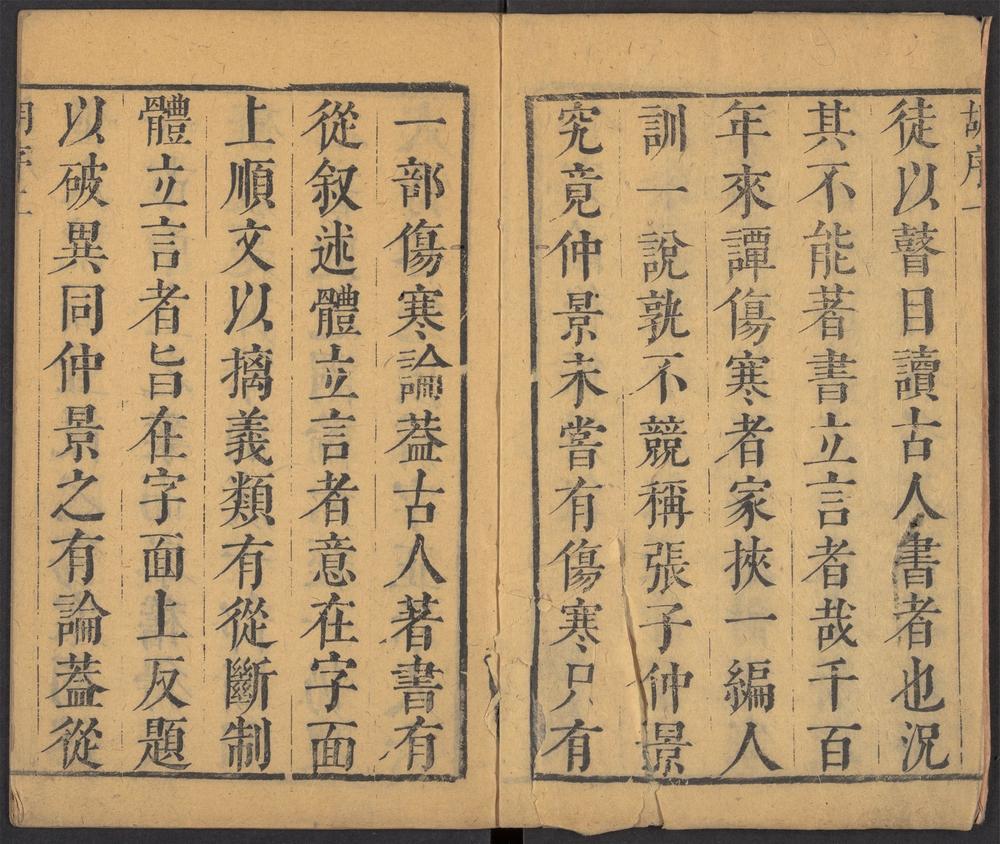 胡序一
徒以瞽目讀古人書者也況
其不能著書立言者哉千百
年來譚傷寒者家挾一編人
訓一說孰不競稱張子仲景
究竟仲景未嘗有傷寒只有
一部傷寒論葢古人著書有
從叙述體立言者意在字面
上順文以摛義類有從斷制
體立言者旨在字面上反題
以破異同仲景之有論葢從